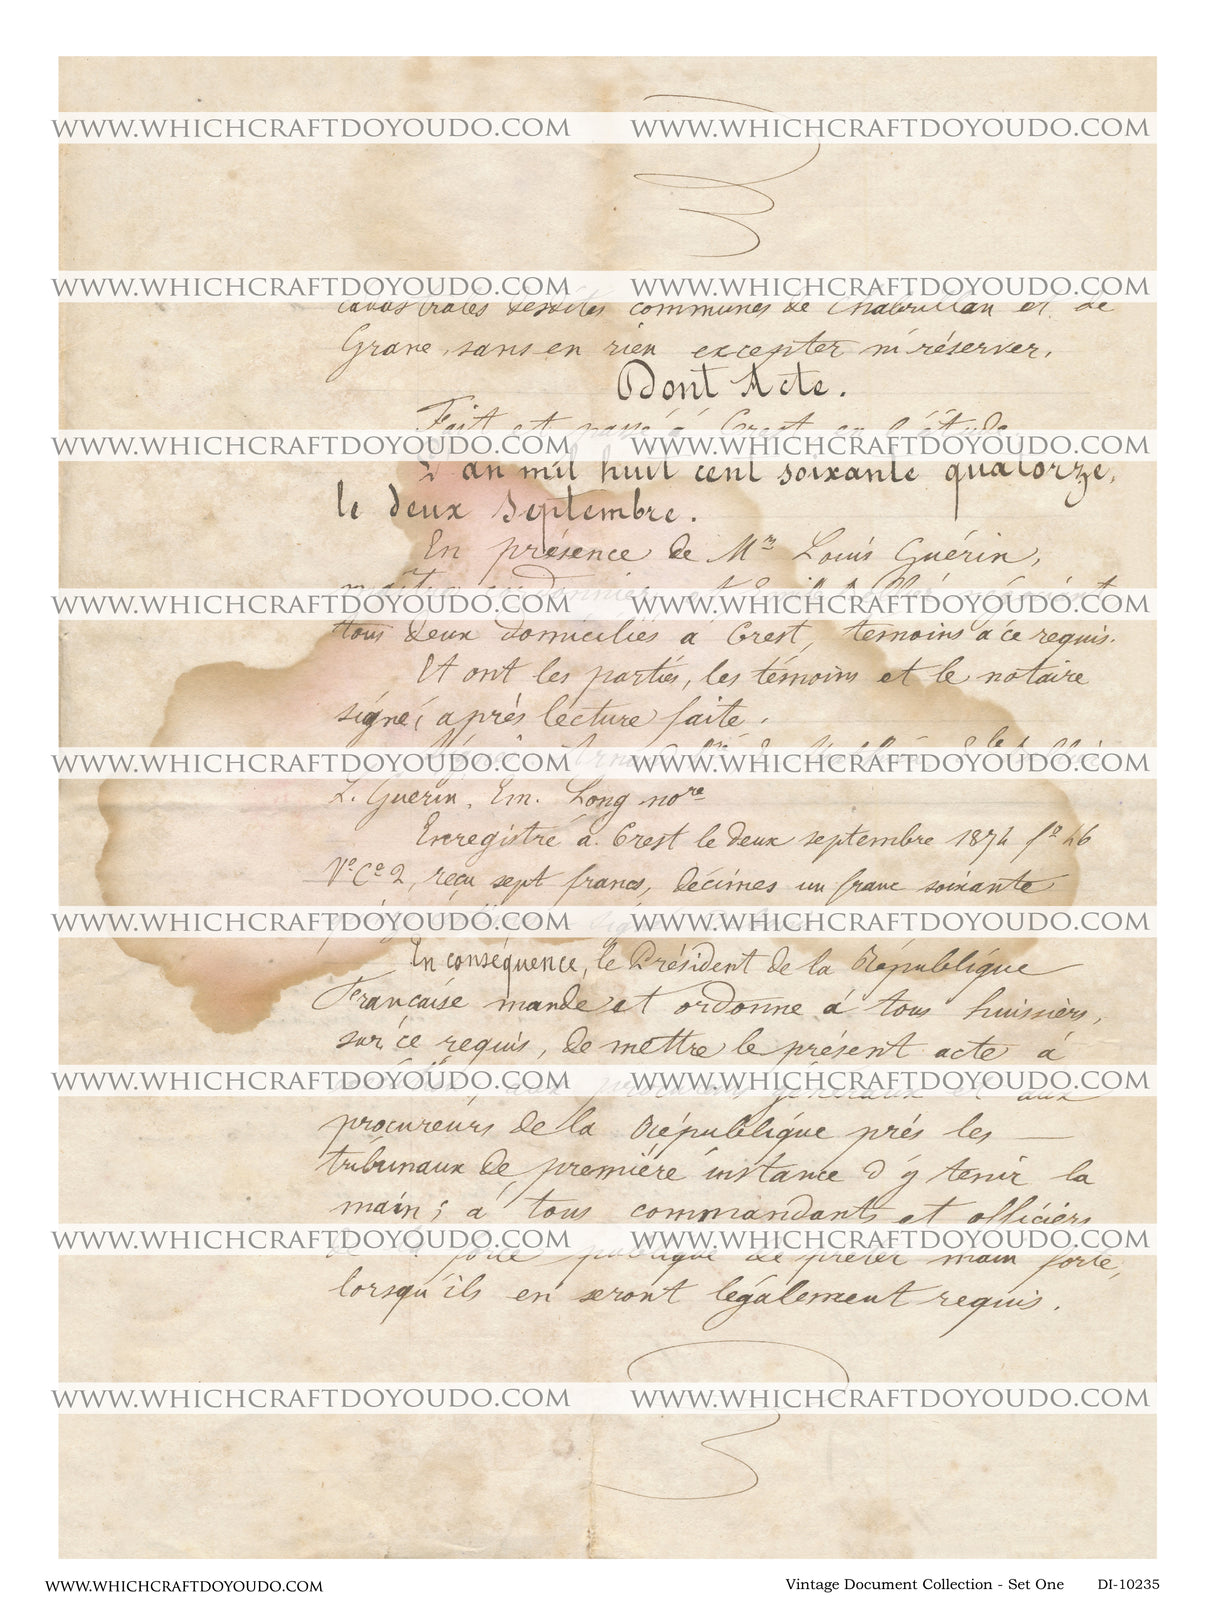 WWW.WHICHCRAFTDOYOUDO.COM WWW.WHICHCRAFTDOYOUDO.COM
WWW.WHICHCRAFTDOYOUDO.COM WWW.WHICHCRAFTDOYOUDO.COM
cadastrales desdites communes de Chabrillan et de
Grane, sans en rien excepter ni réserver.
Dont Acte.
Fait et passé à Crest en l'étude
WWW.WHICHCRAFTDOYOUDO.COM WWW.WHICHCRAFTDOYOUDO.COM
L'an mil huit cent soixante quatorze,
le deux Septembre.
En présence de Mr Louis Guérin,
WWW.WHICHCRAFTDOYOUDO.COM WWW.WHICHCRAFTDOYOUDO.COM
tous deux domiciliés à Crest, témoins à ce requis.
Et ont les parties, les témoins et le notaire
signé, après lecture faite.
WWW.WHICHCRAFTDOYOUDO.COM WWW.WHICHCRAFTDOYOUDO.COM
L. Guérin, Em. Long nore
Enregistré à Crest le deux septembre 1874 fo 46
Vo Co 2, reçu sept francs, décimes un franc soixante
WWW.WHICHCRAFTDOYOUDO.COM WWW.WHICHCRAFTDOYOUDO.COM
En conséquence, le Président de la République
Française mande et ordonne à tous huissiers,
sur ce requis, de mettre le présent acte à
WWW.WHICHCRAFTDOYOUDO.COM WWW.WHICHCRAFTDOYOUDO.COM
procureurs généraux et aux
procureurs de la République près les —
tribunaux de première instance d'y tenir la
main; à tous commandants et officiers
WWW.WHICHCRAFTDOYOUDO.COM WWW.WHICHCRAFTDOYOUDO.COM
de la force publique de prêter main forte,
lorsqu'ils en seront légalement requis.
WWW.WHICHCRAFTDOYOUDO.COM WWW.WHICHCRAFTDOYOUDO.COM
WWW.WHICHCRAFTDOYOUDO.COM Vintage Document Collection - Set One DI-10235